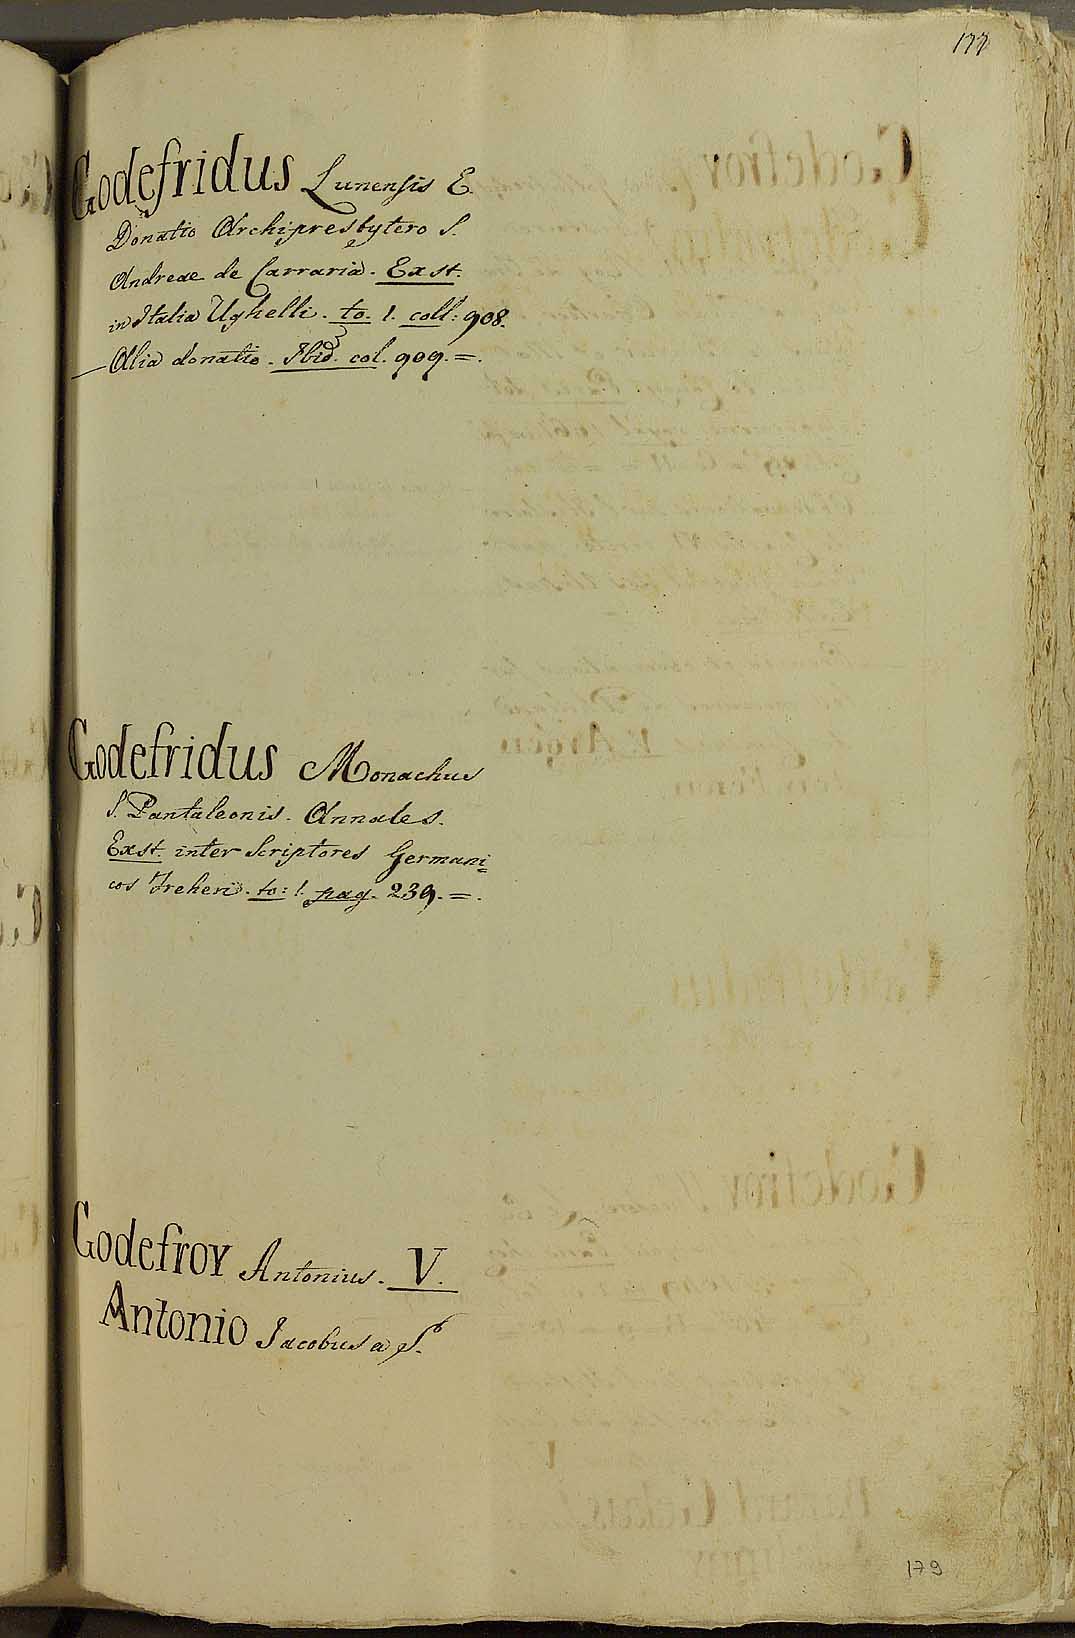 177
Godefridus Lunensis E.
Donatio Archipresbytero S.
Andreae de Carraria. Exst.
in Italia Ughelli. to. 1. coll: 908.
— Alia donatio. Ibid. col. 909. =.
Godefridus Monachus
S. Pantaleonis. Annales.
Exst. inter Scriptores Germani=
cos Freheri. to: 1. pag. 239. =.
Godefroy Antonius. V.
Antonio Jacobus a S.
179